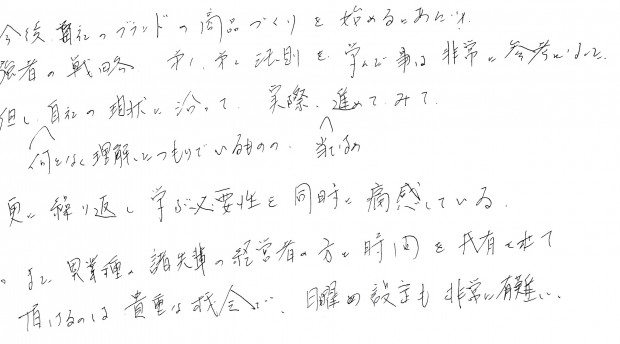 今後、自社のブランドの商品づくりを始めるにあたり、
強者の戦略 第1、第2法則を学んだ事は非常に参考になった。
但し、自社の現状に沿って、実際、進めてみて、
何となく理解したつもりでいるものの、当てはめ
更に繰り返し学ぶ必要性を同時に痛感している。
。また、異業種の諸先輩の経営者の方と時間を共有させて
頂けるのは貴重な機会で、日曜の設定も非常に有難い、